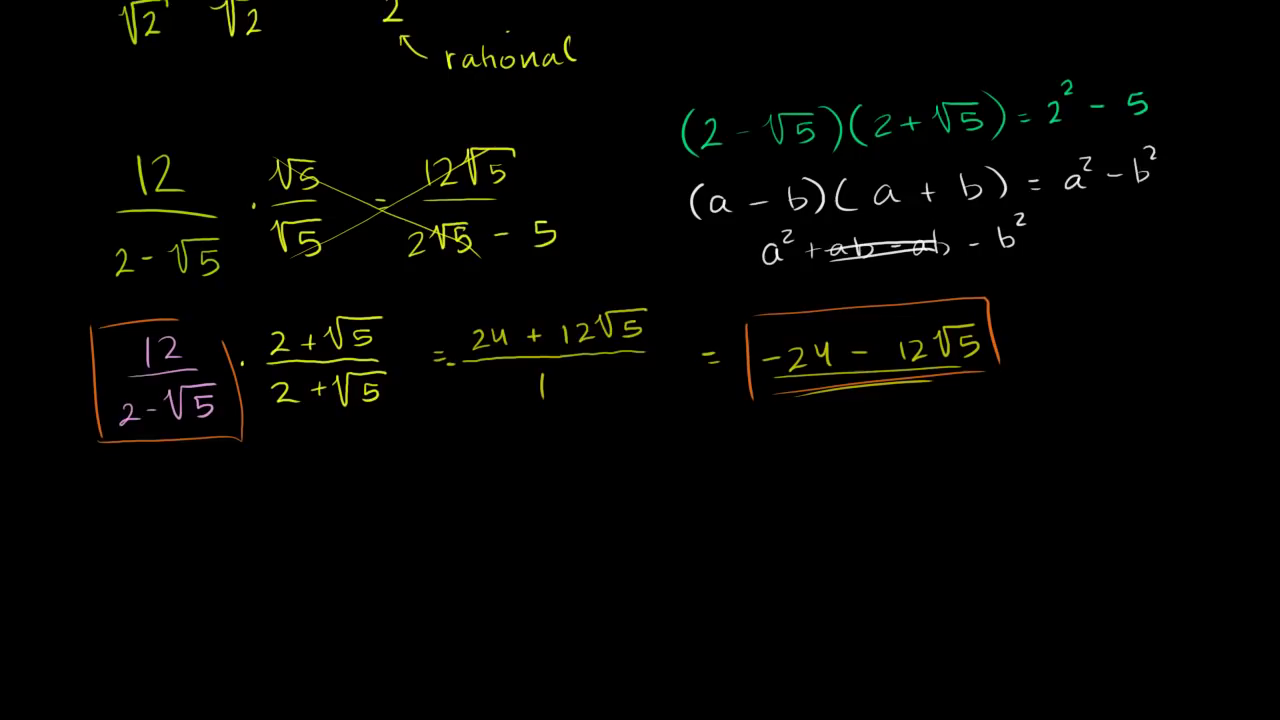 √2 √2 2
rational
(2 - √5)(2 + √5) = 2² - 5
12/(2 - √5) · √5/√5 = 12√5/(2√5 - 5)
(a - b)(a + b) = a² - b²
a² + ab - ab - b²
12/(2 - √5) · (2 + √5)/(2 + √5) = - (24 + 12√5)/1 = -24 - 12√5